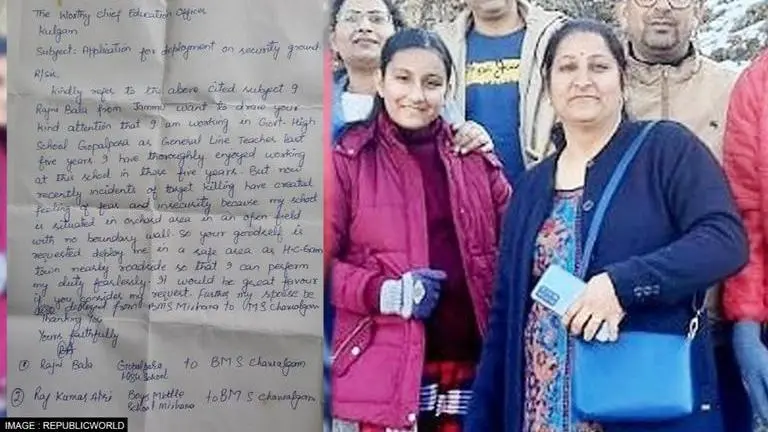 The Worthy Chief Education Officer
Kulgam
Subject: Application for deployment on security ground
R/sir,
Kindly refer to the above cited subject I
Rajni Bala from Jammu want to draw your
kind attention that I am working in Govt. High
School Gopalpora as General Line Teacher last
five years. I have thoroughly enjoyed working
at this school in these five years. But now
recently incidents of target killing have created
feeling of fear and insecurity because my school
is situated in orchard area in an open field
with no boundary wall. So your goodself is
requested deploy me in a safe area as H-C-Gam
town nearby roadside so that I can perform
my duty fearlessly. It would be great favour
if you consider my request. Further my spouse be
deployed from BMS Mirhama to MS Chawalgam
Thanking You
Yours faithfully
① Rajni Bala Gopalpora High School to BMS Chawalgam
② Raj Kumar Atri Boys Middle School Mirhama to BMS Chawalgam
IMAGE : REPUBLICWORLD